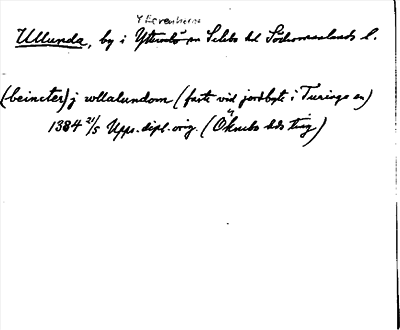 Ytterenhörna
Ullunda, by i Ytterselö sn Selebo hd Södermanlands l.
(beincter) j wllalundom (faste vid jordbyte i Turinge sn)
1384 21/5 Upps. dipl. orig. (Öknebo hds ting)